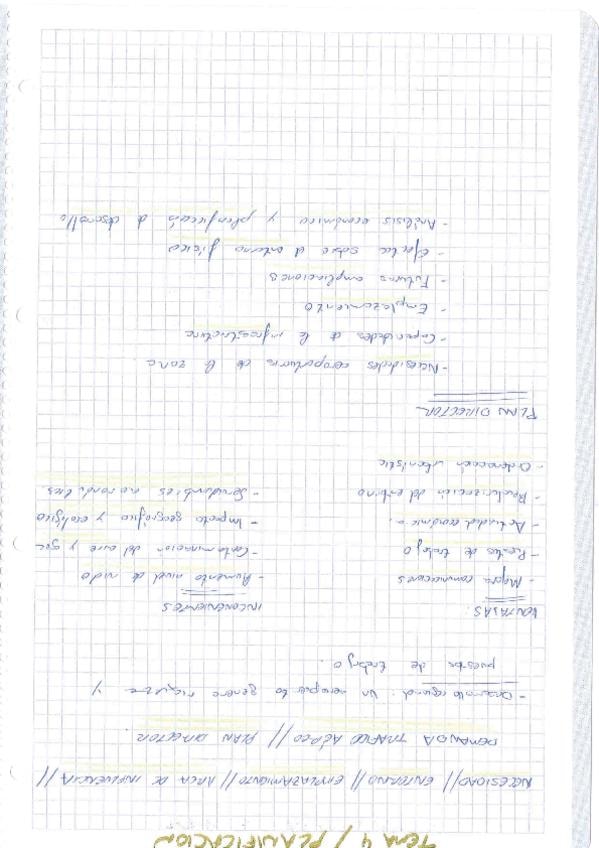 TEMA 4 / PLANIFICACION
NECESIDAD // ENTORNO // EMPLAZAMIENTO // AREA DE INFLUENCIA //
DEMANDA TRAFICO AÉREO // PLAN DIRECTOR.
- Desarrollo regional: un aeropuerto genera riqueza y
puestos de trabajo.
VENTAJAS
- Mejora comunicaciones
- Puestos de trabajo
- Actividad económica.
- Revalorización del entorno
- Ordenación urbanística
INCONVENIENTES
- Aumento nivel de ruido
- Contaminación del aire y
- Impacto geográfico y ecológico
- Servidumbres aeronáuticas
PLAN DIRECTOR
- Necesidades aeroportuarias de la zona.
- Capacidades de la infraestructura
- Emplazamiento
- Futuras ampliaciones
- Efectos sobre el entorno físico
- Análisis económico y planificación d desarrollo